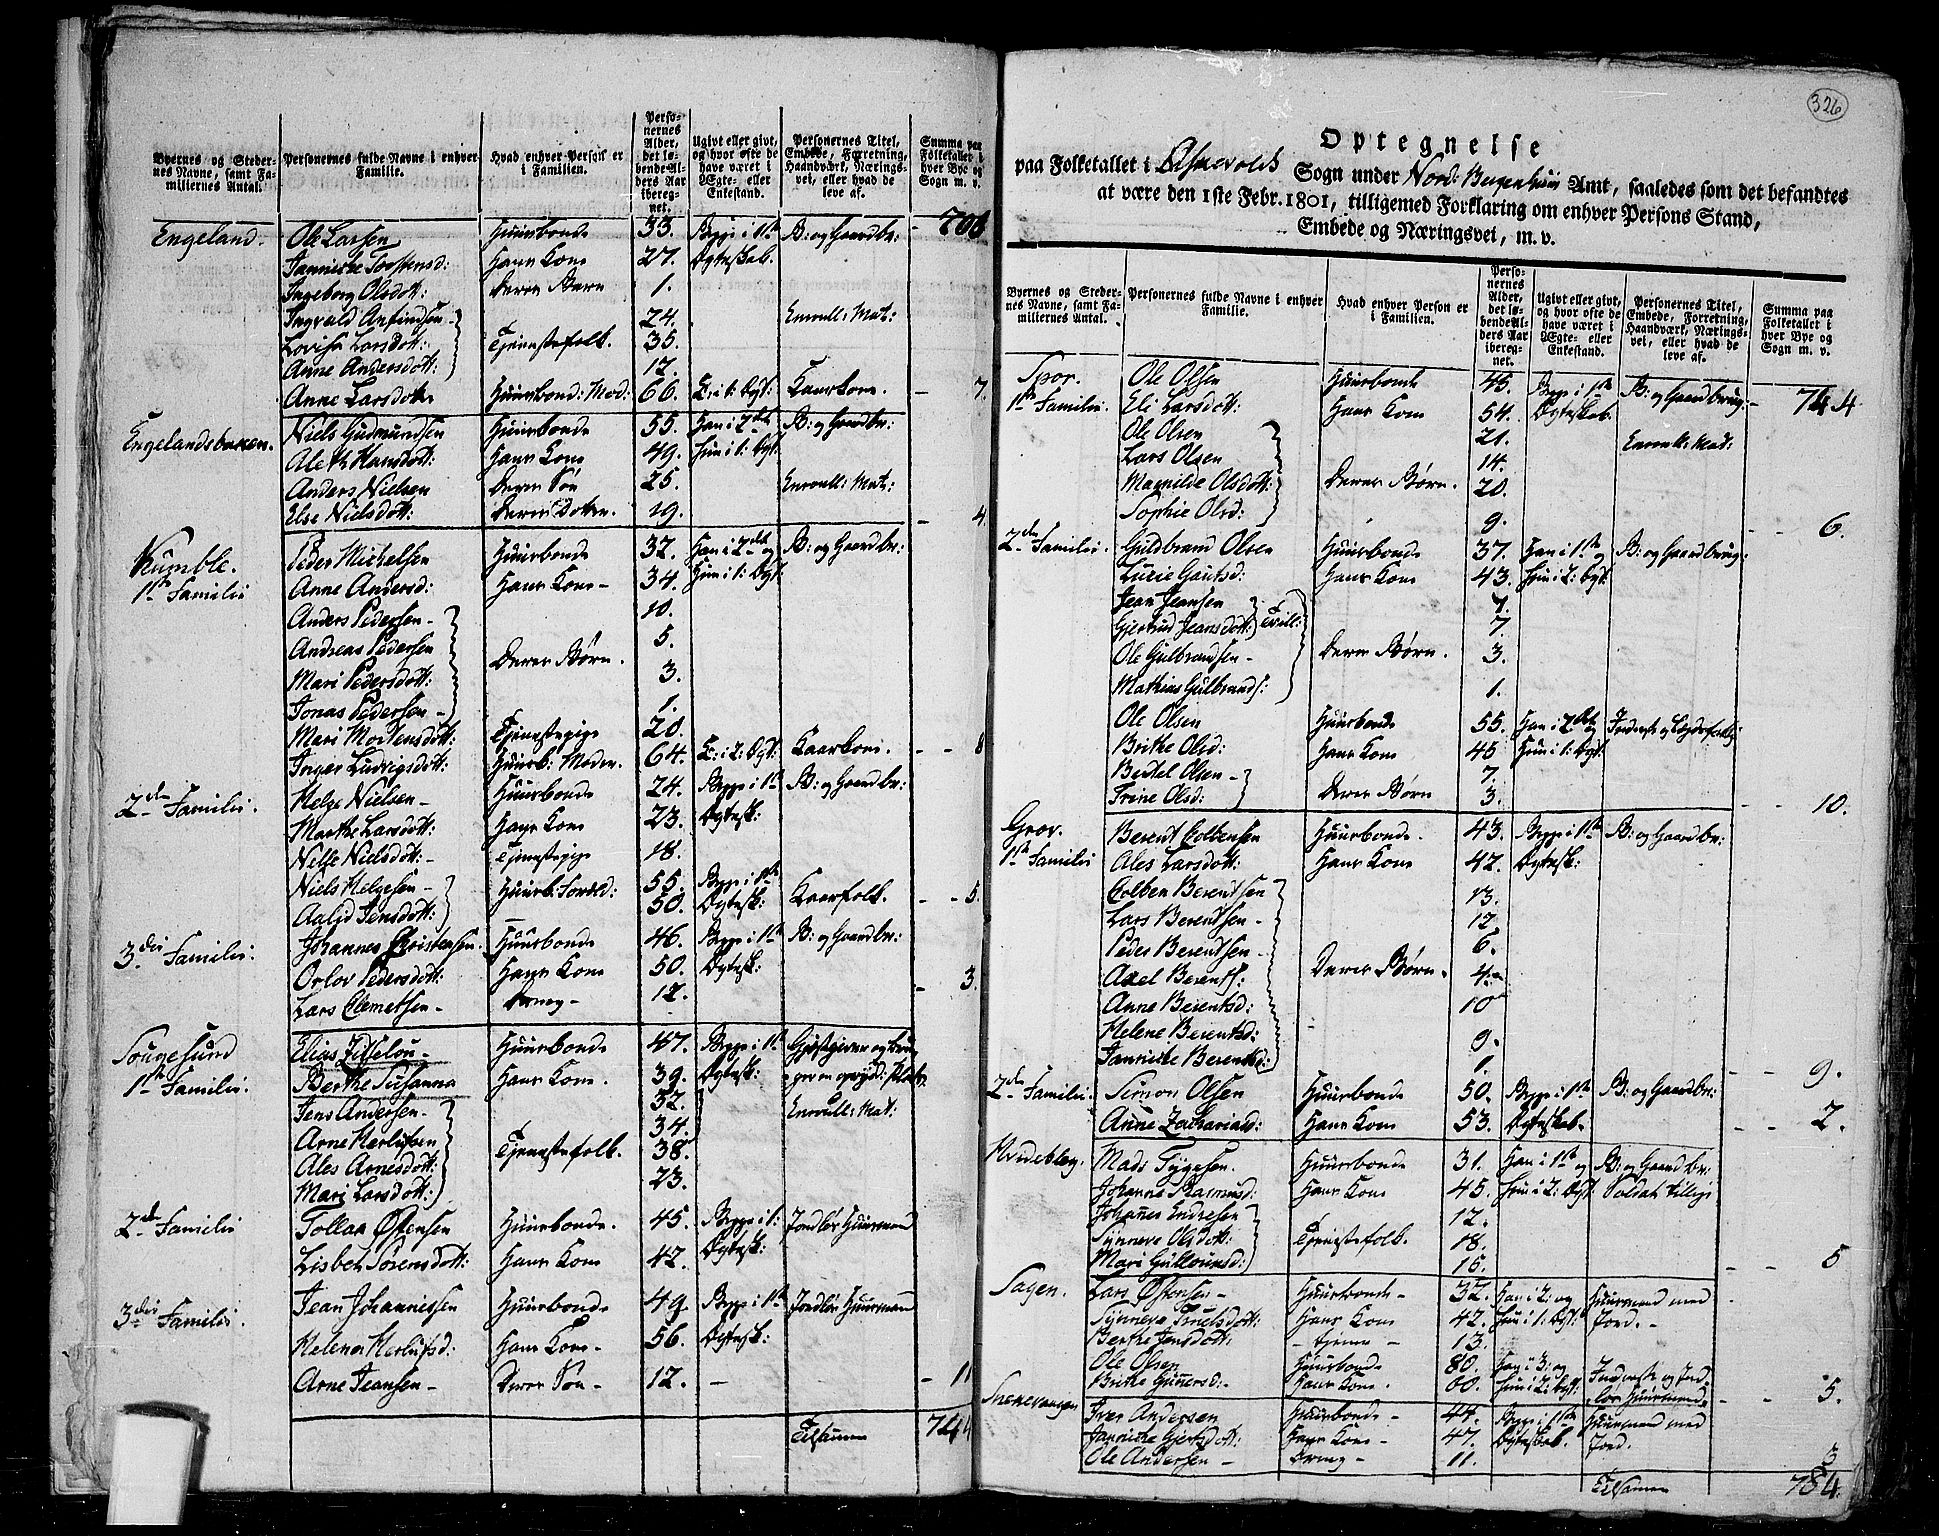 Byernes og Steder-
nes Navne, samt Fa-
miliernes Antal.
Personernes fulde Navne i enhver
Familie.
Hvad enhver Person er
i Familien.
Perso-
nernes
Alder,
det lø-
bende Al-
ders Aar
iberegnet.
Ugivt eller givt,
og hvor ofte de
have været i
Ægte- eller
Enkestand.
Personernes Titel,
Embede, Forretning,
Haandværk, Nærings-
vei, eller hvad de
leve af.
Summa paa
Folketallet i
hver Bye og
Sogn m. v.
Engeland. Ole Larsen Huusbonde 33. Begge i 1te B: og Gaardbr: 701
Jannicke Torstensd: Hans Kone 27. Ægteskab.
Ingeborg Olsdott: Deres Barn 1.
Ingvald Anfindsen 24. Enroull: Mat:
Lovisa Larsdott: Tjenestefolk. 35.
Anne Andersdott: 12.
Anne Larsdotter Huusbond: Mod: 66. E: i 1: Ægt: Kaarkone. 7.
Engelandsbakken. Niels Gudmundsen Huusbonde 55. Han i 2det B: og Gaardbr:
Aleth Hansdott: Hans Kone 49. Hun i 1: Ægt:
Anders Nielsen Deres Søn 25. Enroull: Mat:
Else Nielsdott: Deres Dotter. 19. 4.
Kumble. Peder Michelsen Huusbonde 32. Han i 2det og B: og Gaardbr:
1te Familie Anne Andersd: Hans Kone 34. Hun i 1: Ægt:
Anders Pedersen 10.
Andreas Pedersen 5.
Mari Pedersdott: Deres Børn. 3.
Jonas Pedersen 1.
Mari Mortensdott: Tjenestepige 20.
Inger Ludvigsdott: Huusb: Moder. 64. E: i 2: Ægt: Kaarkone. 8
2den Familie. Helge Nielsen Huusbonde 24. Begge i 1te B: og Gaardbr:
Marthe Larsdott: Hans Kone 23. Ægtesk:
Nelse Nielsdott: Tjenestepige 18.
Niels Helgesen Huusb: Foræld: 55. Begge i 1te Kaarfolk. 5.
Aalid Jensdott: 50. Ægtesk:
3die Familie. Johannes Christensen. Huusbonde 46. Begge i 1te B: og Gaardbr:
Orlov Pedersdott: Hans Kone 50. Ægtesk: 3.
Lars Clemetsen Dreng 12.
Sougesund Elias Huusbonde 47. Begge i 1te Gjæstgiver og
1te Familie. Berthe Susanna Hans Kone. 39. Ægtesk:
Jens Andersen 32. Enroull: Mat:
Arne Herlufsen 34.
Ales Arnesdott: Tjenestefolk. 38.
Mari Larsdott: 23.
2den Familie Tollak Østensen Huusbonde. 45. Begge i 1: Jordløs Huusmand
Lisbeth Sørensdott: Hans Kone 42. Ægtesk:
3die Familie. Jean Johannessen Huusbonde 49. Begge i 1te Jordløs Huusmand
Helena Herlufsd: Hans Kone 56. Ægtesk:
Arne Jeansen Deres Søn 12. 11
Tilsamen 744
326
Optegnelse
paa Folketallet i Askevolds Sogn under Nord: Bergenhuus Amt, saaledes som det befandtes
at være den 1ste Febr. 1801, tilligemed Forklaring om enhver Persons Stand,
Embede og Næringsvei, m. v.
Byernes og Steder-
nes Navne, samt Fa-
miliernes Antal.
Personernes fulde Navne i enhver
Familie.
Hvad enhver Person er
i Familien.
Perso-
nernes
Alder,
det lø-
bende Al-
ders Aar
iberegnet.
Ugivt eller givt,
og hvor ofte de
have været i
Ægte- eller
Enkestand.
Personernes Titel,
Embede, Forretning,
Haandværk, Nærings-
vei, eller hvad de
leve af.
Summa paa
Folketallet i
hver Bye og
Sogn m. v.
Spor. Ole Olsen Huusbonde 45. Begge i 1te B: og Gaardbrug: 744
1te Familie. Eli Larsdott: Hans Kone 54. Ægteskab.
Ole Olsen 21. Enroull: Mat:
Lars Olsen 14.
Magnilde Olsdott: Deres Børn. 20.
Sophie Olsd: 9. 6.
2den Familie. Guldbrand Olsen Huusbonde 37. Han i 1te og B: og Gaardbrug:
Lucie Gautsd: Hans Kone 43. Hun i 2: Ægt:
Jean Jeansen 7.
Gjertrud Jeansdott: Tvill: 7.
Ole Gulbrandsen Deres Børn. 3.
Mathias Gulbrands: 1.
Ole Olsen Huusbonde 55. Han i 2det og Inderste og
Brithe Olsd: Hans Kone 45 Hun i 1: Ægt:
Bertel Olsen 7.
Trine Olsd: Deres Børn 3. 10.
Grov. Berent Colbensen Huusbonde. 43. Begge i 1te B: og Gaardbr:
1te Familie Ales Larsdott: Hans Kone 42. Ægtesk:
Colben Berentsen 13.
Lars Berentsen 12
Peder Berentsen 6.
Axel Berents: Deres Børn. 4.
Anne Berentsd: 10
Helene Berentsd: 9.
Jannicke Berentsd: 1. 9.
2den Familie. Simon Olsen Huusbonde 50. Begge i 1te B: og Gaardbr:
Anne Zachariasd: Hans Kone 53. Ægteskab. 2.
Hvidebleg. Mads Tygesen. Huusbonde 31. Han i 1te og B: og Gaardbr:
Johanne Rasmusd: Hans Kone 45. Hun i 2: Ægt: Soldat tillige
Johanes Endresen 12.
Synneve Olsdott: Tjenestefolk. 18.
Mari Gulleuvsd: 15. 5
Sagen. Lars Østensen Huusbonde 32. Han i 2: og Huusmand med
Synneve Truelsdott: Hans Kone 42. Hun i 1: Ægt: Jord.
Berthe Jensdott: tjener 13.
Ole Olsen Huusbonde 80. Han i 3: og Inderste og Jord-
Brithe Gunersd: Hans Kone 60. Hun i 2: Ægt: løs Huusmand. 5.
Snekevaagen Iver Andersen Huusbonde 44. Begge i 1ste Huusmand med
Jannicke Gjertsdott: Hans Kone 47. Ægteskab. Jord.
Ole Andersen Dreng 11. 3
Tilsamen 784.